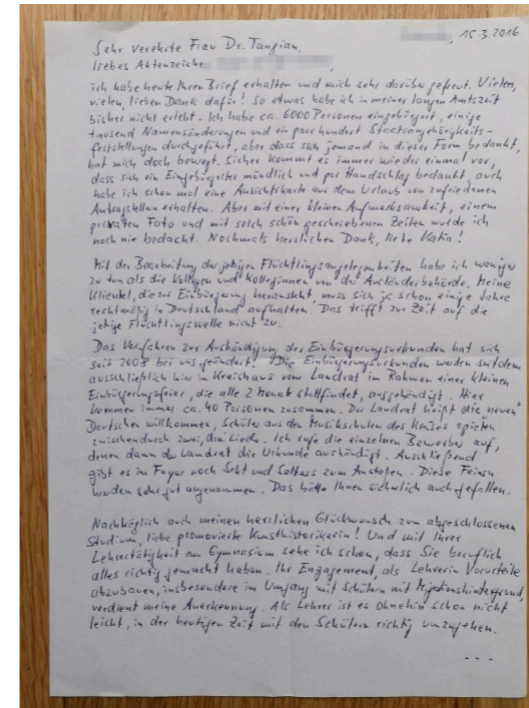 15.3.2016
Sehr verehrte Frau Dr. Tangian,
liebes Aktenzeichen
ich habe heute Ihren Brief erhalten und mich sehr darüber gefreut. Vielen,
vielen, lieben Dank dafür! So etwas habe ich in meiner langen Amtszeit
bisher nicht erlebt. Ich habe ca. 6000 Personen eingebürgert, einige
tausend Namensänderungen und ein paar hundert Staatsangehörigkeits-
feststellungen durchgeführt, aber dass sich jemand in dieser Form bedankt,
hat mich doch bewegt. Sicher kommt es immer wieder einmal vor,
dass sich ein Eingebürgerter mündlich und per Handschlag bedankt, auch
habe ich schon mal eine Ansichtskarte aus dem Urlaub von zufriedenen
Antragstellern erhalten. Aber mit einer kleinen Aufmerksamkeit, einem
privaten Foto und mit solch schön geschriebenen Zeilen wurde ich
noch nie bedacht. Nochmals herzlichen Dank, liebe Katia!
Mit der Bearbeitung der jetzigen Flüchtlingsangelegenheiten habe ich weniger
zu tun als die Kollegen und Kolleginnen von der Ausländerbehörde. Meine
Klientel, die zur Einbürgerung heransteht, muss sich ja schon einige Jahre
rechtmäßig in Deutschland aufhalten. Das trifft zur Zeit auf die
jetzige Flüchtlingswelle nicht zu.
Das Verfahren zur Aushändigung der Einbürgerungsurkunden hat sich
seit 2008 bei uns geändert. Die Einbürgerungsurkunden werden seitdem
ausschließlich hier im Kreishaus vom Landrat im Rahmen einer kleinen
Einbürgerungsfeier, die alle 2 Monate stattfindet, ausgehändigt. Hier
kommen immer ca. 40 Personen zusammen. Der Landrat heißt die "neuen"
Deutschen willkommen, Schüler aus den Musikschulen des Kreises spielen
zwischendurch zwei, drei Lieder. Ich rufe die einzelnen Bewerber auf,
denen dann der Landrat die Urkunde aushändigt. Anschließend
gibt es im Foyer noch Sekt und Softdrinks zum Anstoßen. Diese Feiern
werden sehr gut angenommen. Das hätte Ihnen sicherlich auch gefallen.
Nachträglich auch meinen herzlichen Glückwunsch zum abgeschlossenen
Studium, liebe promovierte Kunsthistorikerin! Und mit Ihrer
Lehrertätigkeit am Gymnasium sehe ich schon, dass Sie beruflich
alles richtig gemacht haben. Ihr Engagement, als Lehrerin Vorurteile
abzubauen, insbesondere im Umgang mit Schülern mit Migrationshintergrund,
verdient meine Anerkennung. Als Lehrer ist es ohnehin schon nicht
leicht, in der heutigen Zeit mit den Schülern richtig umzugehen.
---